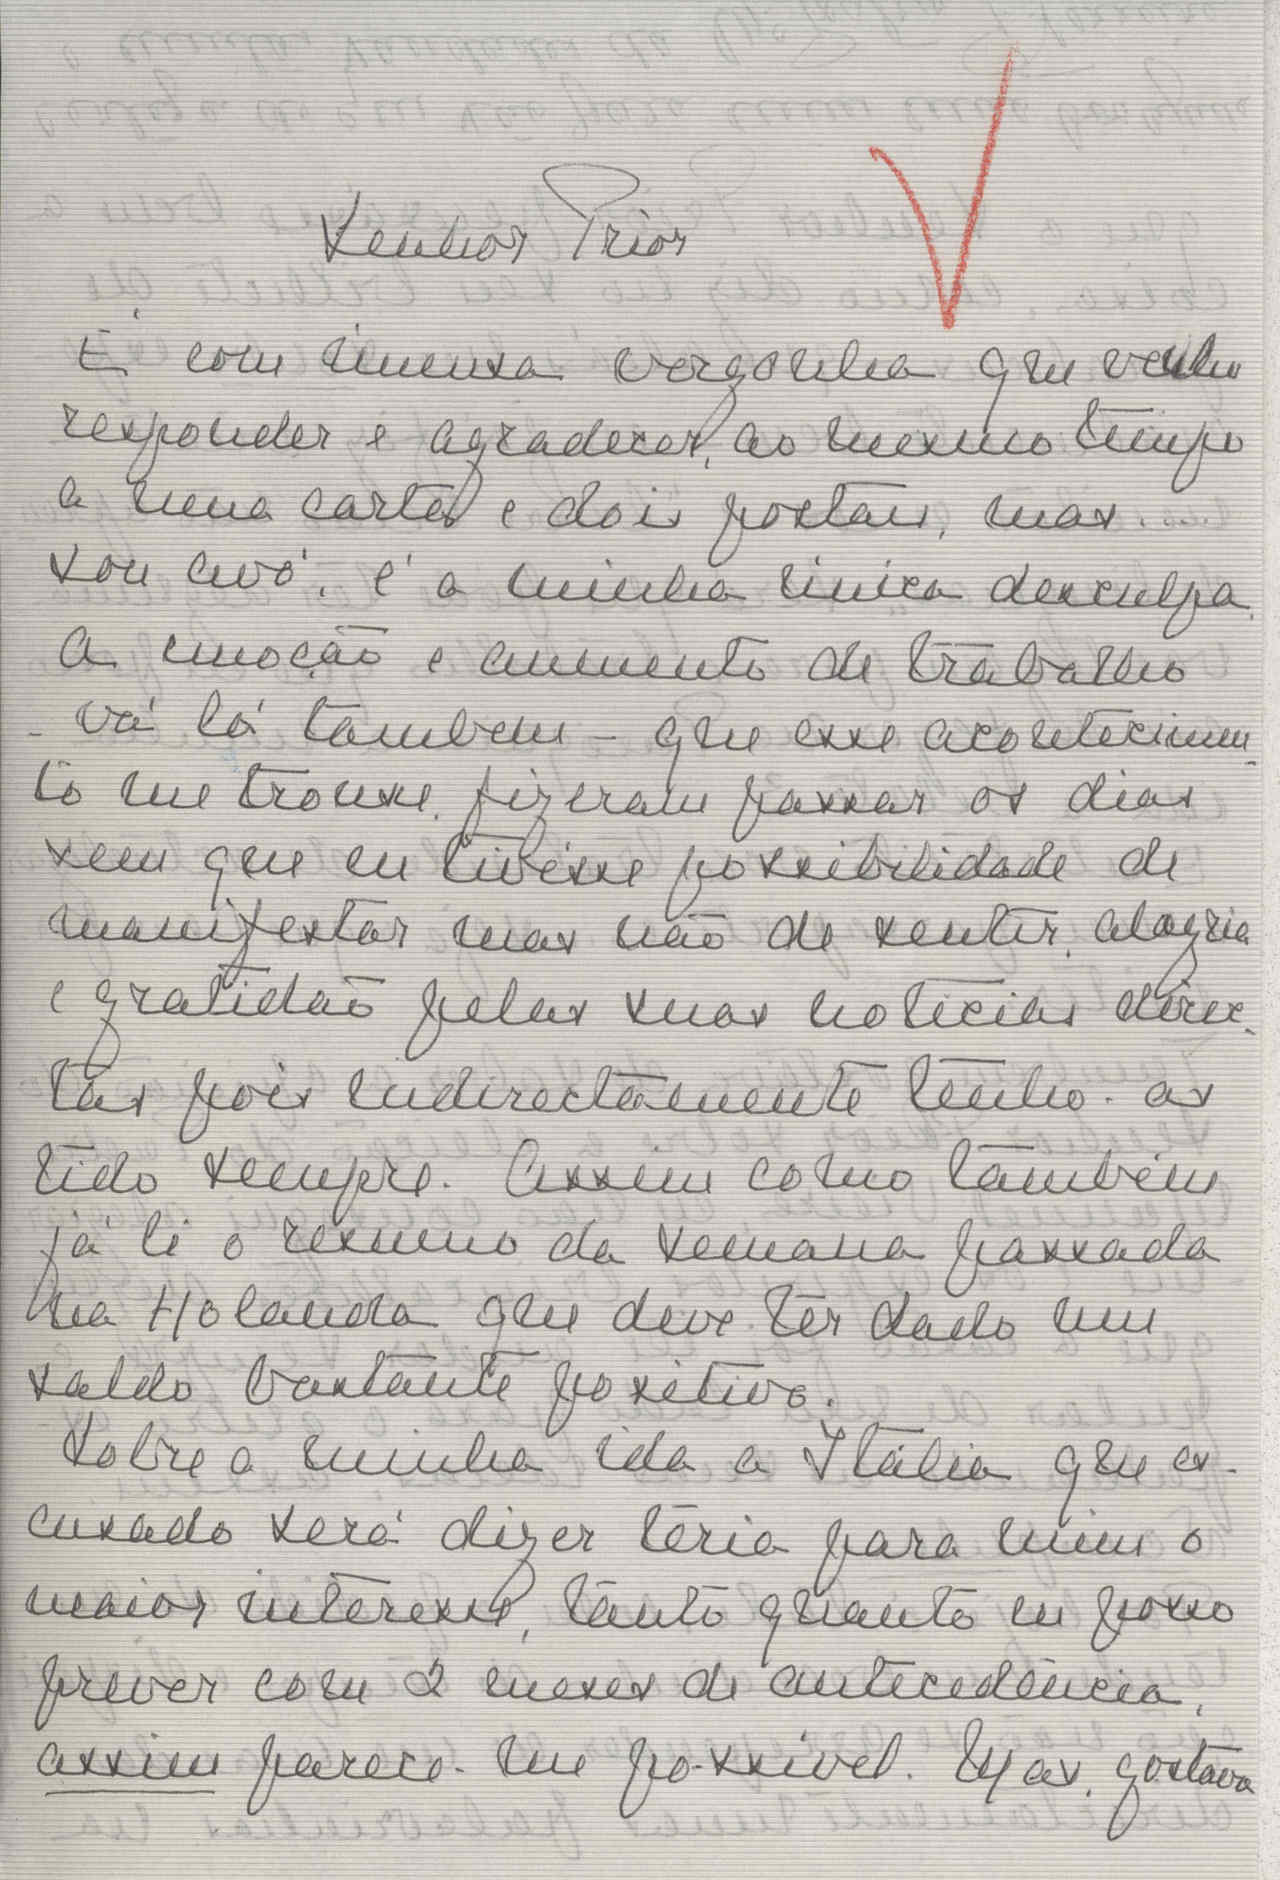 Senhor Prior
É com imensa vergonha que venho
responder e agradecer, ao mesmo tempo
a uma carta e dois postais, mas...
sou avó, é a minha única desculpa.
A emoção e aumento de trabalho
- vá lá tambem - que esse acontecimen-
to me trouxe, fizeram passar os dias
sem que eu tivesse possibilidade de
manifestar mas não de sentir, alegria
e gratidão pelas suas noticias direc-
tas pois indirectamente tenho-as
tido sempre. Assim como também
já li o resumo da semana passada
na Holanda que deve ter dado um
saldo bastante positivo.
Sobre a minha ida a Itália que es-
cusado será dizer teria para mim o
maior interesse, tanto quanto eu posso
prever com 2 meses de antecedência,
assim parece-me possivel. Mas, gostava